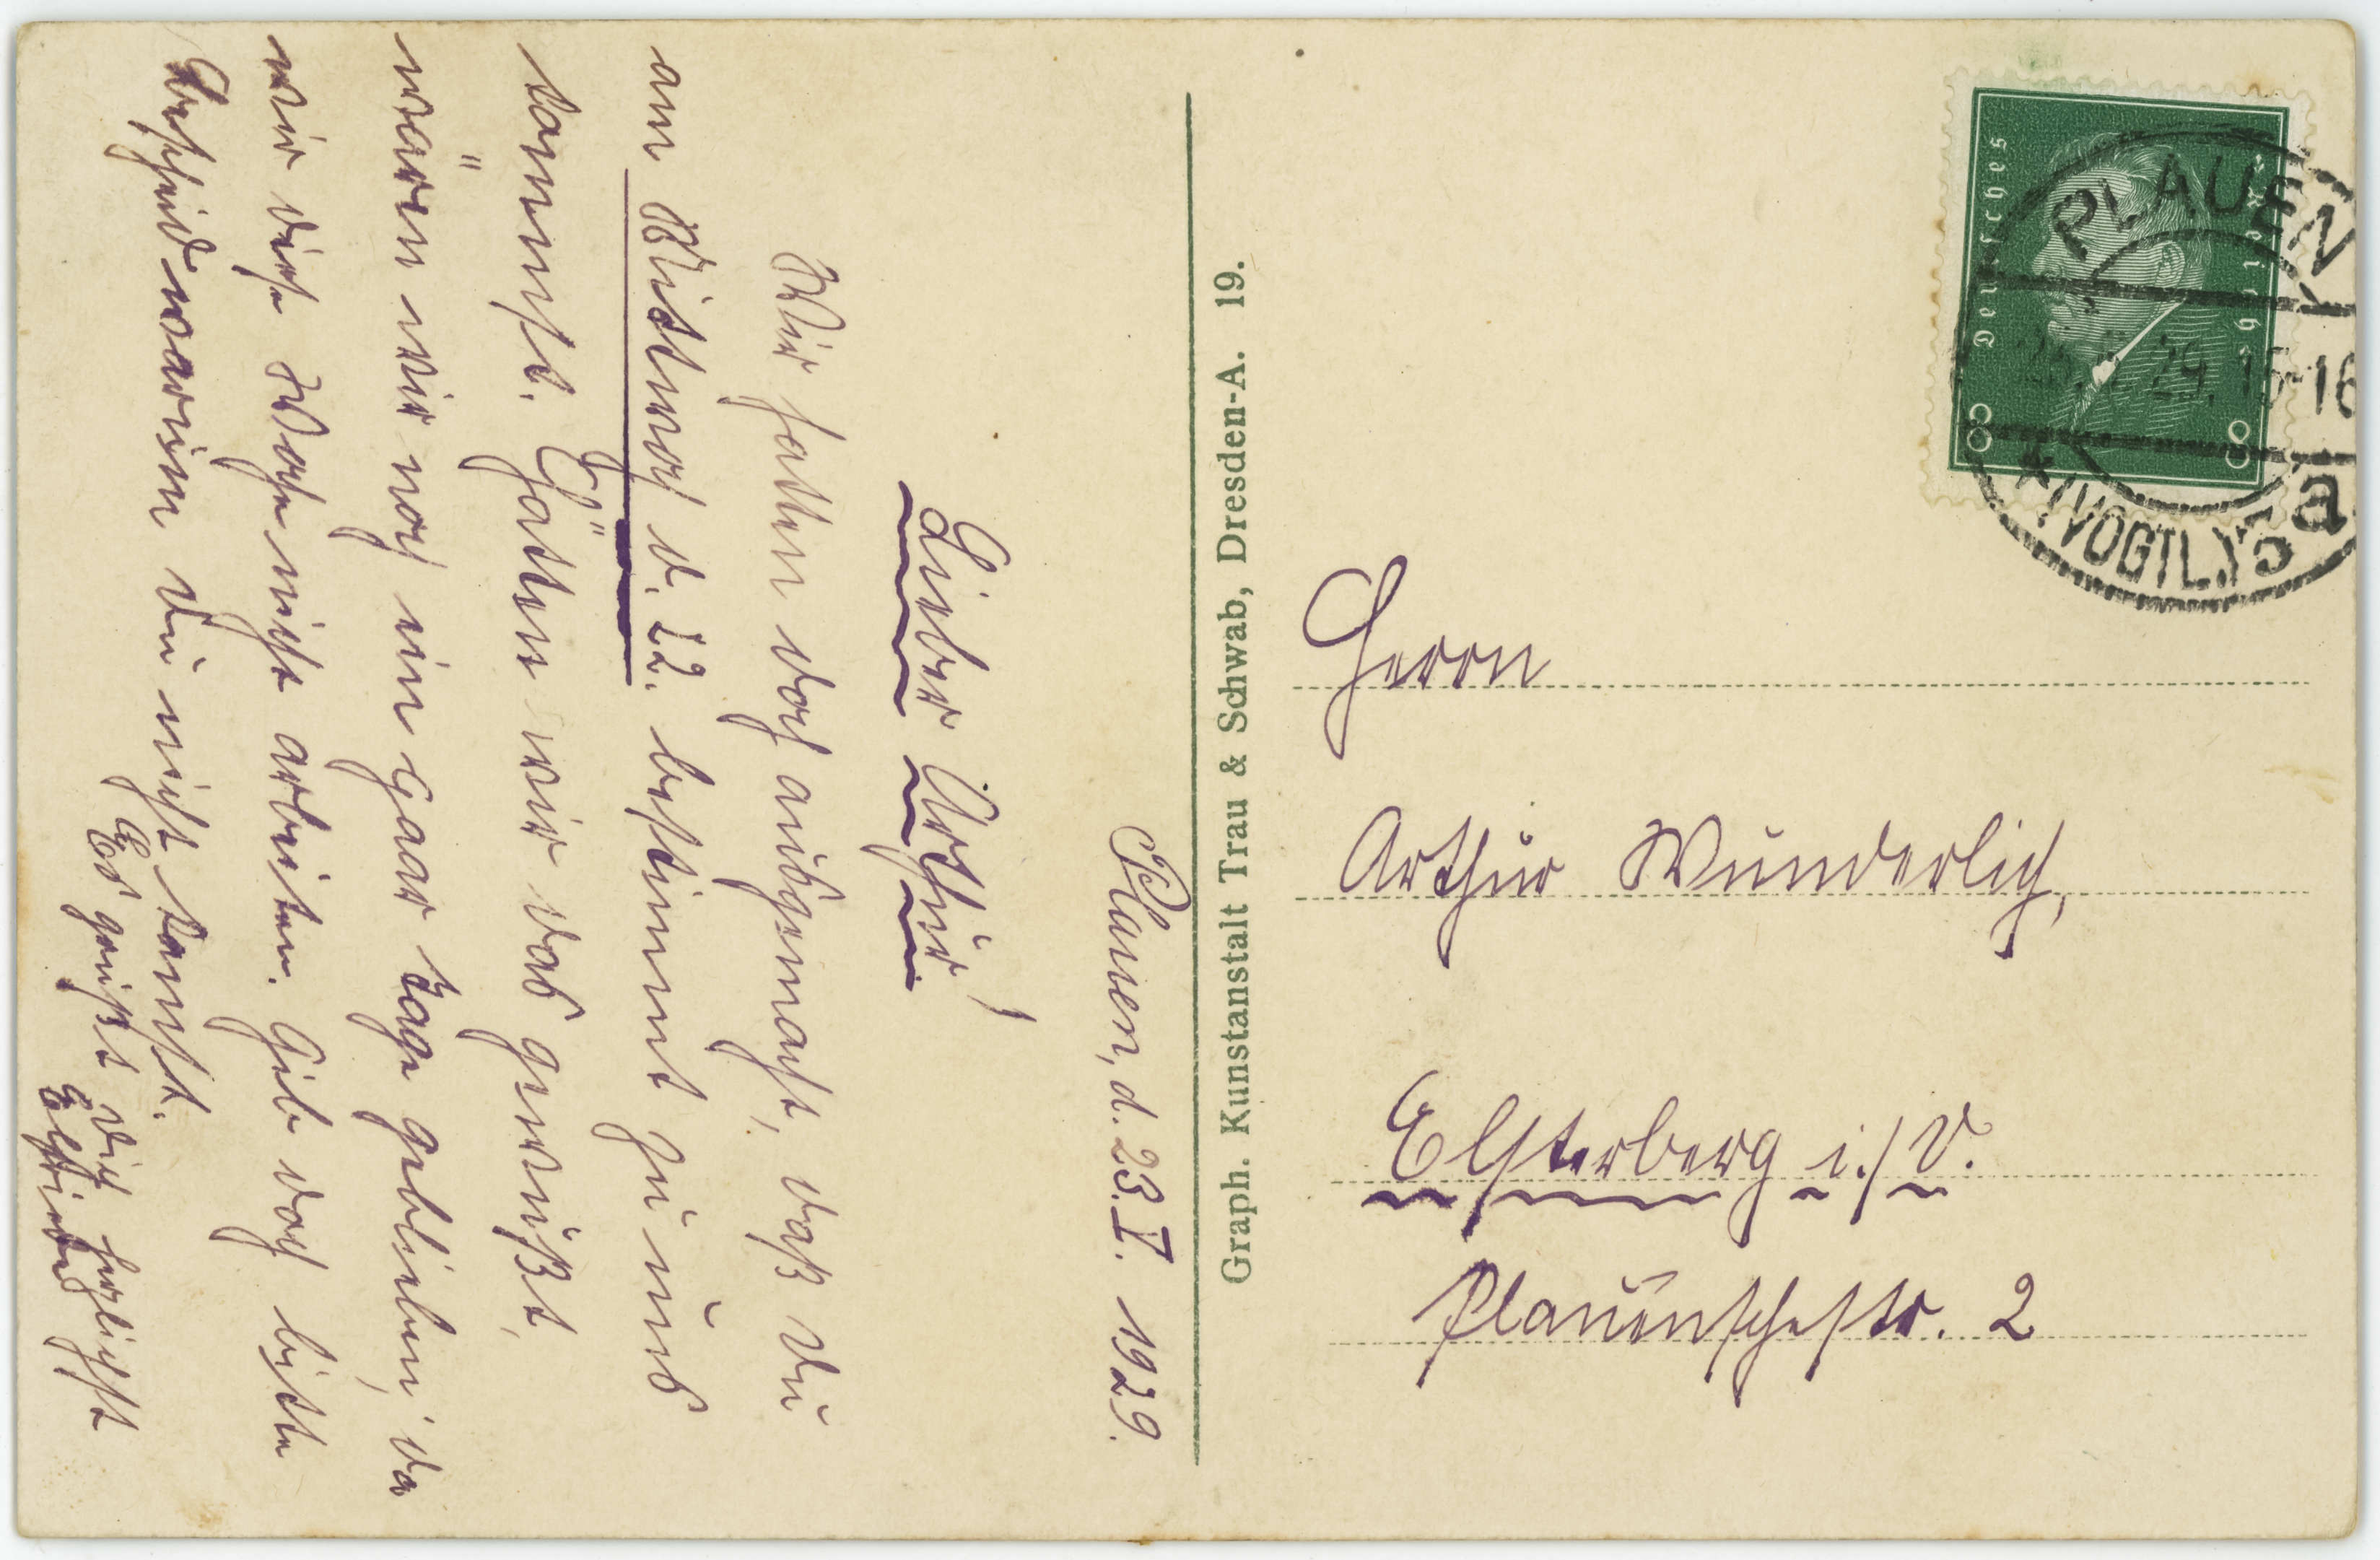 Plauen, d. 23. V. 1929.
Lieber Arthur!
Wir hatten doch ausgemacht, daß Du
am Mittwoch d. 22. bestimmt zu uns
kommst. Hätten wir das gewußt,
wären wir noch ein paar Tage geblieben, da
wir diese Woche nicht arbeiten. Gib doch bitte
Bescheid warum Du nicht kamst.
Es grüßt Dich herzlichst
Elfriede
Graph. Kunstanstalt Trau & Schwab, Dresden-A. 19.
Deutsches Reich
8 8
PLAUEN
29. 15-16
* (VOGTL.) 5 a
Herrn
Arthur Wunderlich,
Elsterberg i./V.
Plauenschestr. 2